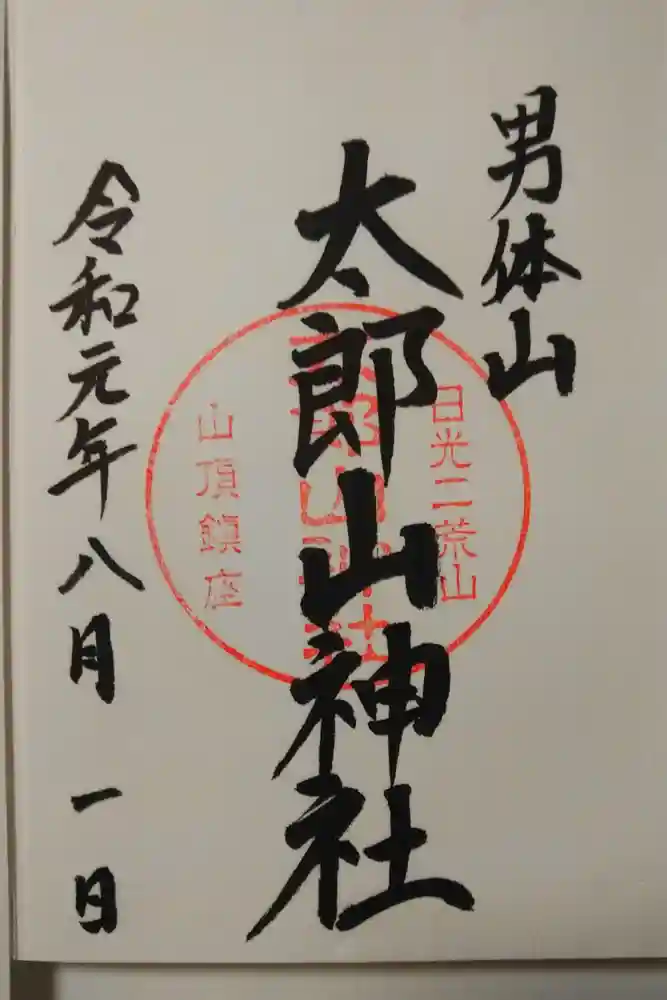 男体山
日光二荒山
太郎山神社
太郎山神社
山頂鎮座
令和元年八月一日